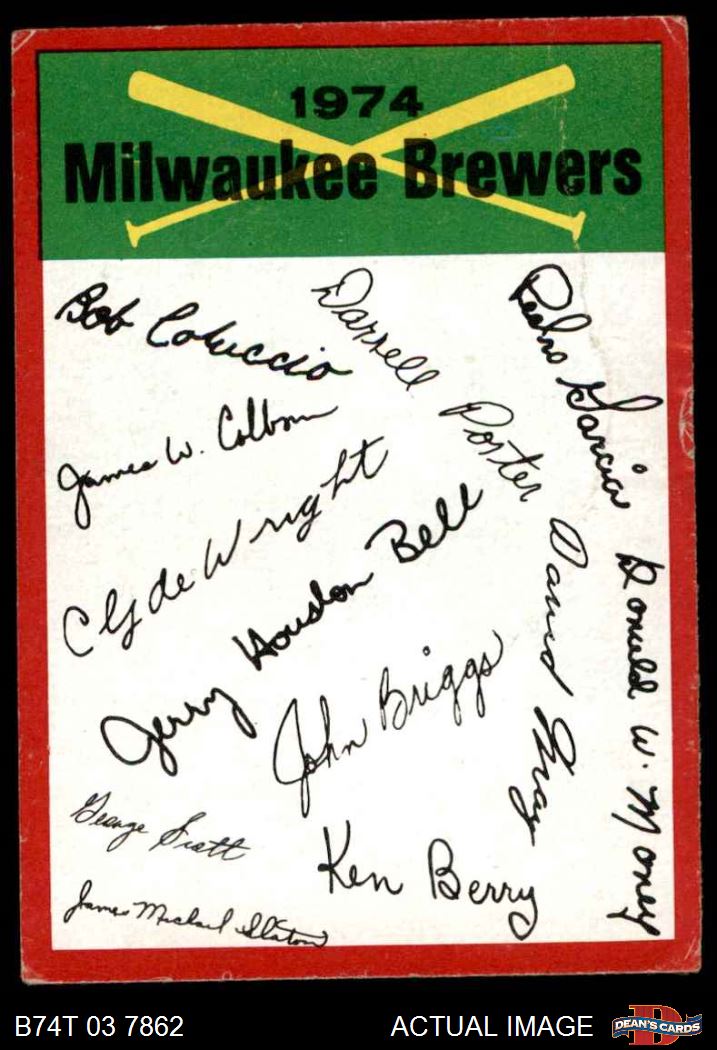 1974
Milwaukee Brewers
Bob Coluccio
Darrell Porter
Pedro Garcia
James W. Colborn
Clyde Wright
Jerry Houston Bell
David May
Donald W. Money
John Briggs
George Scott
Ken Berry
James Michael Slaton
B74T 03 7862
ACTUAL IMAGE
D
DEAN'S CARDS